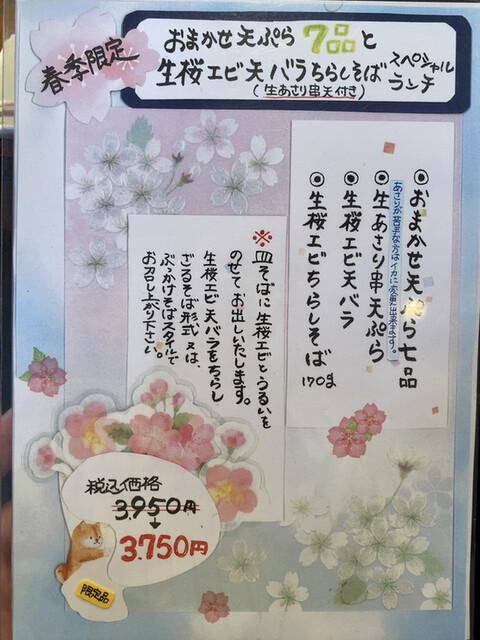 春季限定
おまかせ天ぷら7品と
生桜エビ天バラちらしそば スペシャルランチ
(生あさり串天付き)
◎おまかせ天ぷら七品
◎生あさり串天ぷら
あさりが苦手な方はイカに変更出来ます。
◎生桜エビ天バラ
◎生桜エビちらしそば 170g
※皿そばに生桜エビとうるいを
のせてお出しいたします。
生桜エビ天バラをちらし
ざるそば形式又は、
ぶっかけそばスタイルで
お召し上がり下さい。
税込価格
3,950円
↓
3,750円
限定品